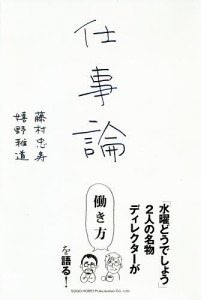 仕事論
藤村忠寿
嬉野雅道
「水曜どうでしょう」
2人の名物
ディレクターが
働き方
を語る!
SOGO HOREI Publishing Co., Ltd